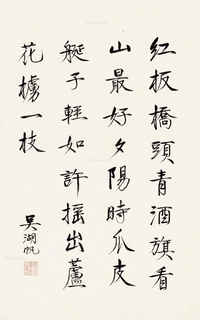 红板橋頭青酒旗看
山最好夕陽時瓜皮
艇子輕如許摇出蘆
花櫓一枝
吴湖帆